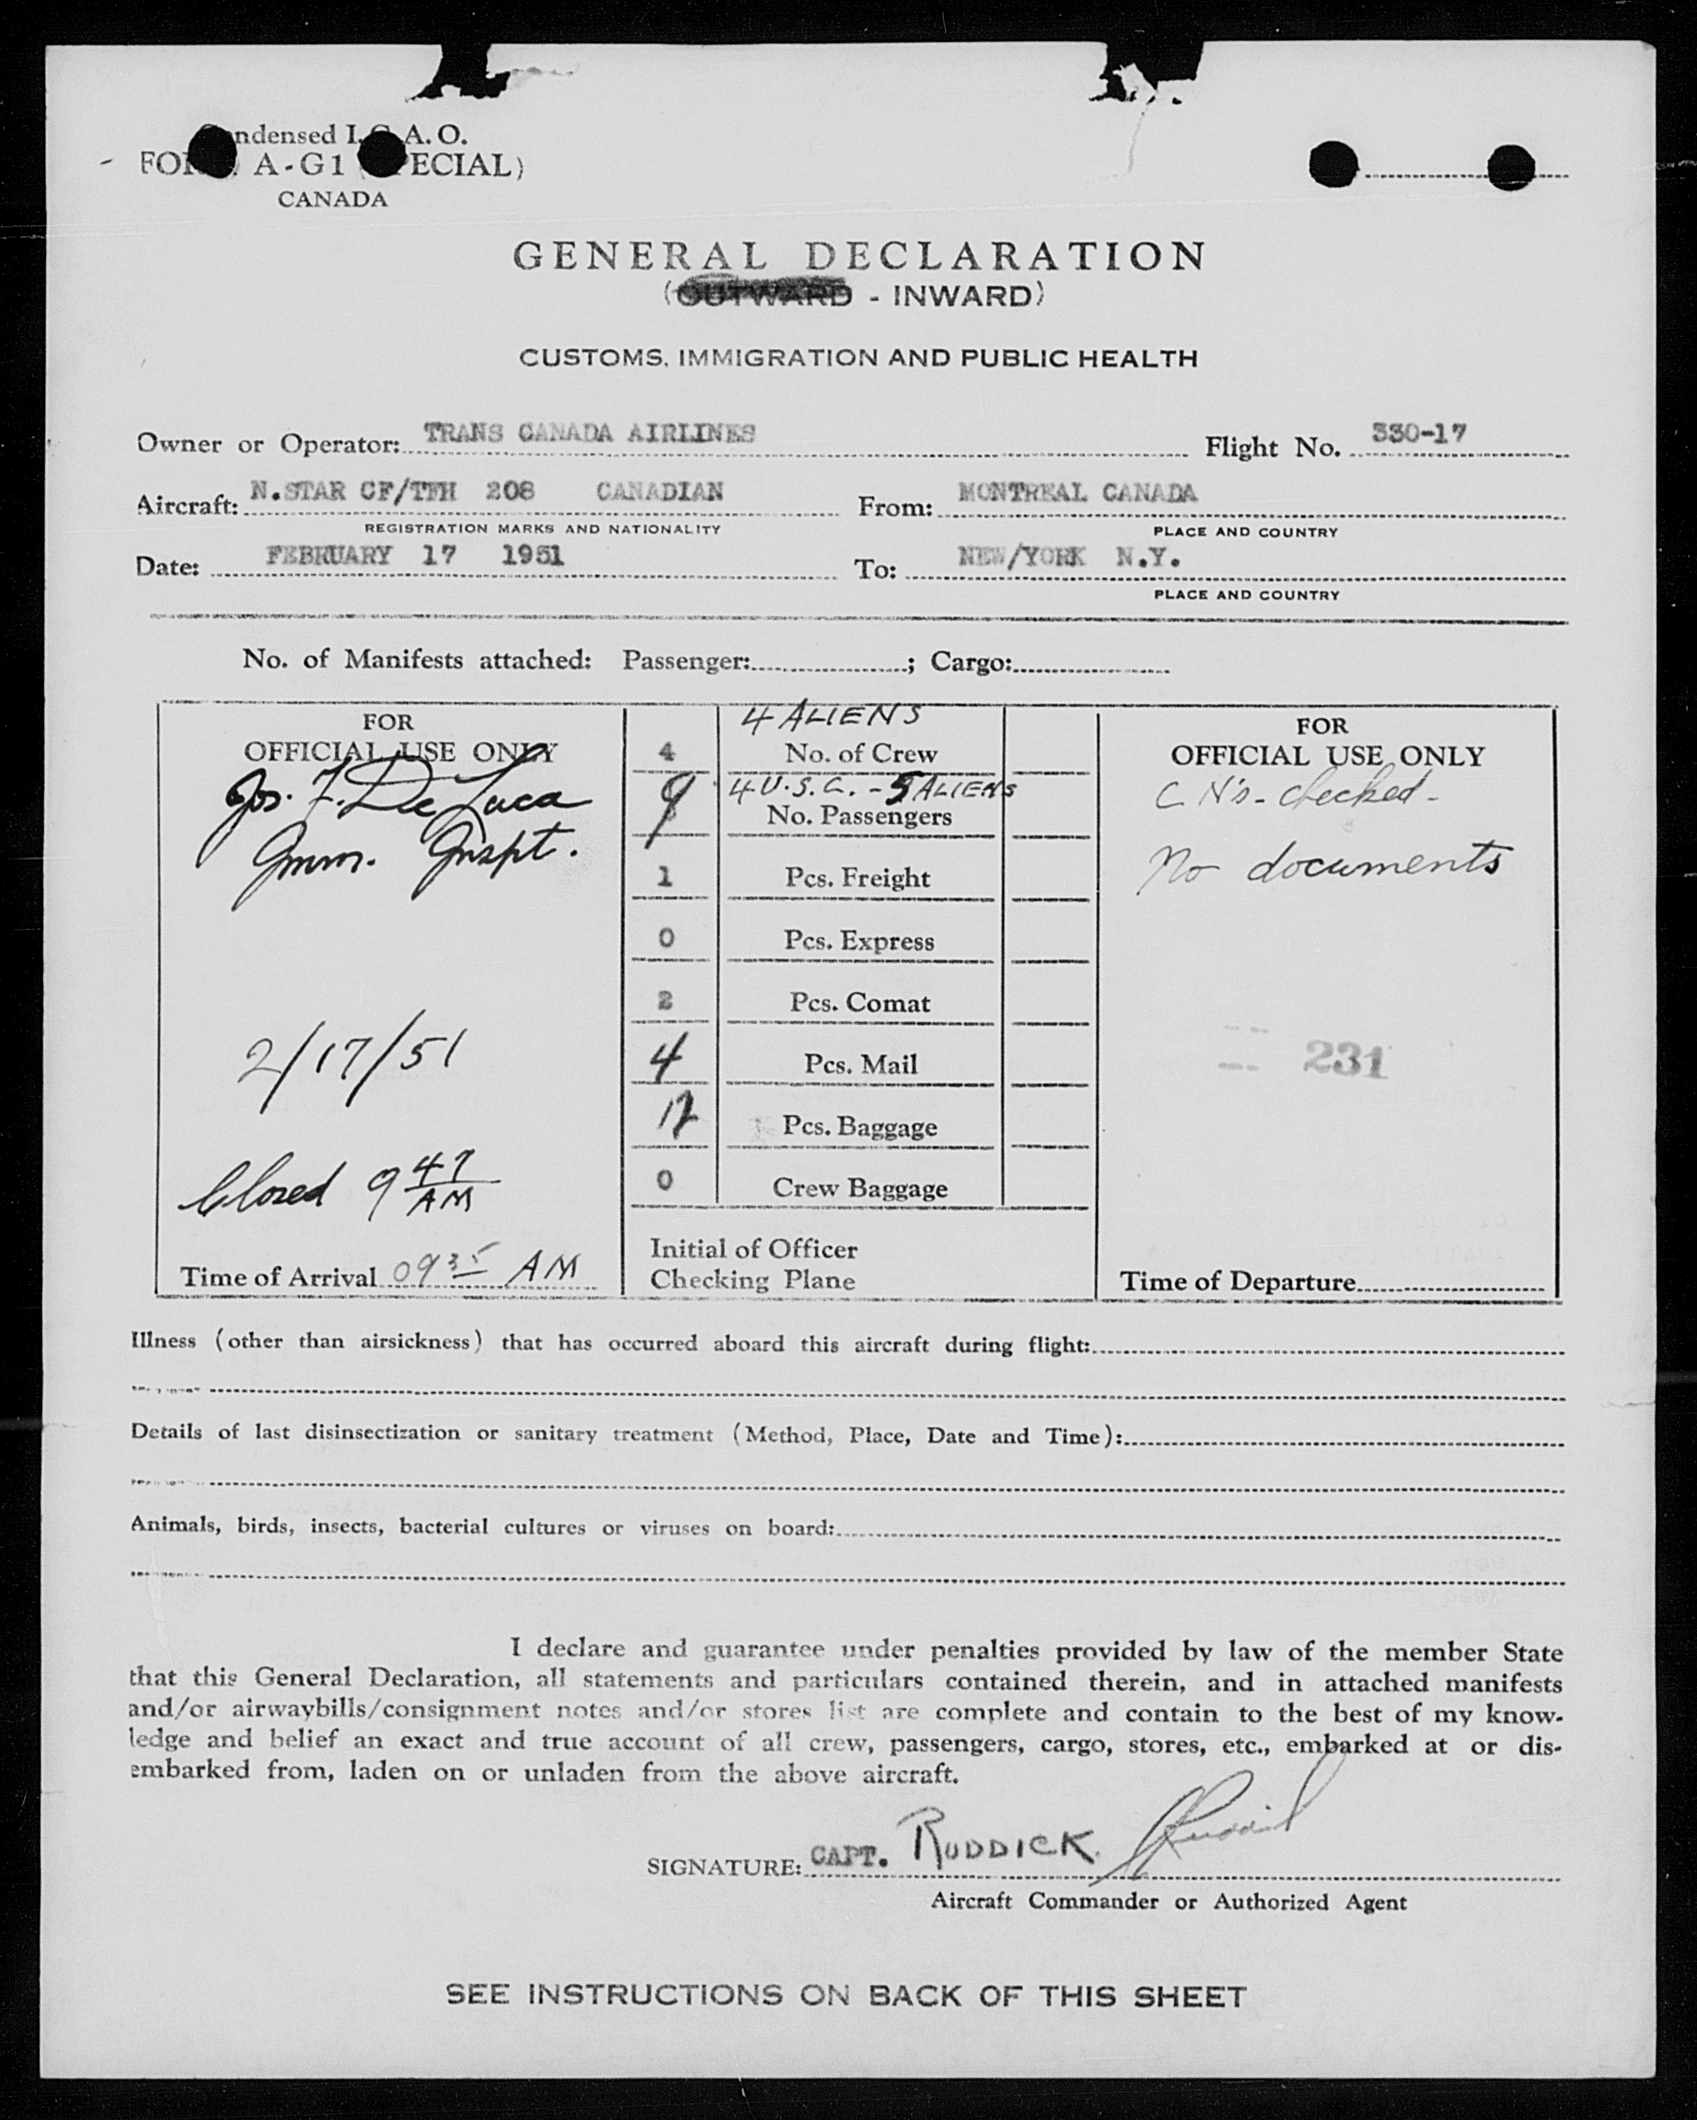 Condensed I.C.A.O.
FORM A-G1 (SPECIAL)
CANADA
GENERAL DECLARATION
(OUTWARD - INWARD)
CUSTOMS, IMMIGRATION AND PUBLIC HEALTH
Owner or Operator: TRANS CANADA AIRLINES Flight No. 330-17
Aircraft: N.STAR CF/TFH 208 CANADIAN From: MONTREAL CANADA
REGISTRATION MARKS AND NATIONALITY PLACE AND COUNTRY
Date: FEBRUARY 17 1951 To: NEW/YORK N.Y.
PLACE AND COUNTRY
No. of Manifests attached: Passenger: ; Cargo:
FOR
OFFICIAL USE ONLY
Jos. F. De Luca
Imm. Inspt.
2/17/51
Closed 9 47 AM
Time of Arrival 0935 AM
4 ALIENS
4 No. of Crew
4 U.S.C. - 5 ALIENS
9 No. Passengers
1 Pcs. Freight
0 Pcs. Express
2 Pcs. Comat
4 Pcs. Mail
12 Pcs. Baggage
0 Crew Baggage
Initial of Officer
Checking Plane
FOR
OFFICIAL USE ONLY
C N's - checked -
No documents
231
Time of Departure
Illness (other than airsickness) that has occurred aboard this aircraft during flight:
Details of last disinsectization or sanitary treatment (Method, Place, Date and Time):
Animals, birds, insects, bacterial cultures or viruses on board:
I declare and guarantee under penalties provided by law of the member State
that this General Declaration, all statements and particulars contained therein, and in attached manifests
and/or airwaybills/consignment notes and/or stores list are complete and contain to the best of my know-
ledge and belief an exact and true account of all crew, passengers, cargo, stores, etc., embarked at or dis-
embarked from, laden on or unladen from the above aircraft.
SIGNATURE: CAPT. RUDDICK Ruddick
Aircraft Commander or Authorized Agent
SEE INSTRUCTIONS ON BACK OF THIS SHEET